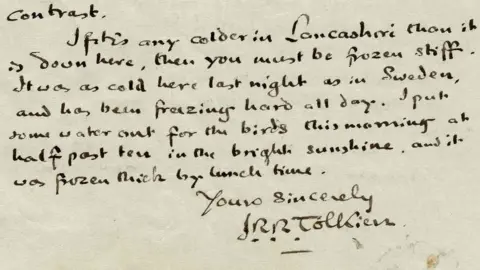 contrast.
If it's any colder in Lancashire than it
is down here, then you must be frozen stiff.
It was as cold here last night as in Sweden,
and has been freezing hard all day. I put
some water out for the birds this morning at
half past ten in the bright sunshine, and it
was frozen thick by lunch time.
Yours sincerely
J.R.R. Tolkien.